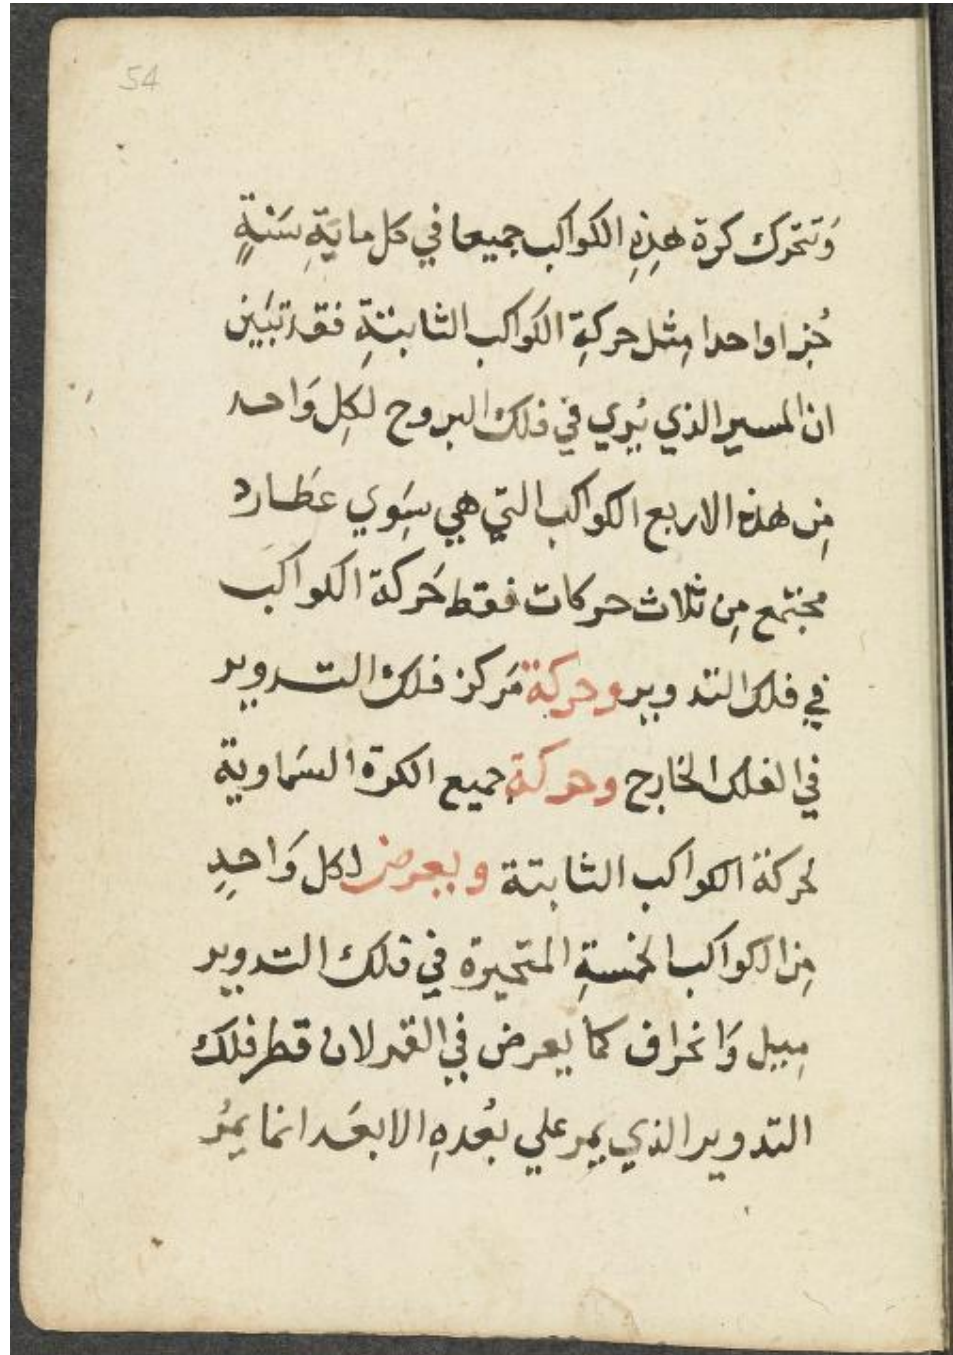 54
وَتتحرك كرة هذِهِ الكواكب جميعا في كل مايَةِ سَنةٍ
جُزا واحدا مِثل حركةِ الكواكب الثابتةِ فقد تبَين
ان المسير الذي يُري في فلك البروج لكِل وَاحد
مِن هذه الاربع الكواكب التي هي سِوي عطَارد
مجتمع مِن ثلاث حركات فقط حَركة الكواكبَ
في فلك التدوير وحركة مَركز فلك التدوير
في الفلك الخارج وحركة جميع الكرة السَماوية
لحركة الكواكب الثابتة ويعرض لكل وَاحدِ
مِن الكواكب الخمسةِ المتحيرة في فلك التدوير
مِيل وَانحراف كما يعرض في القمر لان قطر فلك
التدوير الذي يمر علي بُعدهِ الابعَد انما يمُر